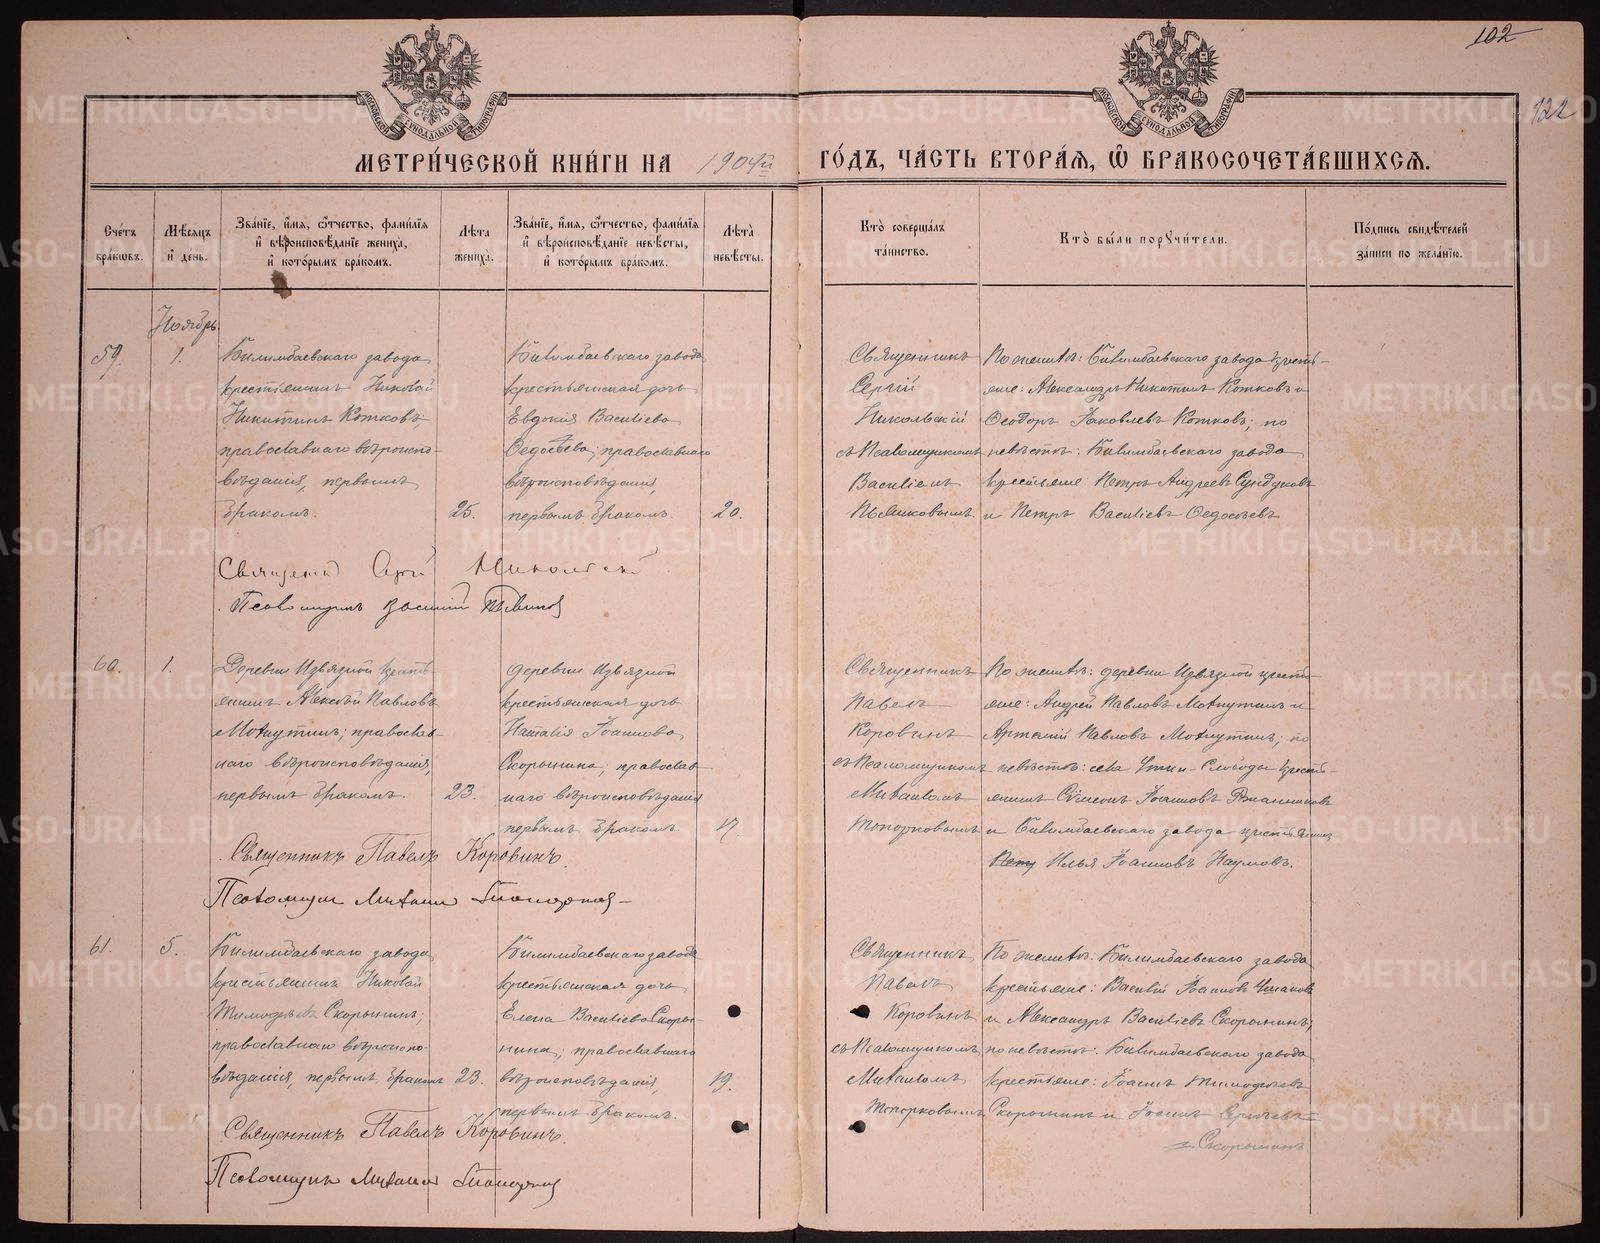 102
122
МЕТРИ́ЧЕСКОЙ КНИ́ГИ НА 1904й ГО́ДЪ, ЧА́СТЬ ВТОРА́Я, Ѡ БРАКОСОЧЕТА́ВШИХСЯ.
Сче́тъ бра́кѡвъ.
Мѣ́сяцъ и́ де́нь.
Зва́нїе, и́мя, ѻ́тчество, фами́лїя и́ вѣроисповѣ́данїе жениха̀, и́ кото́рымъ бра́комъ.
Лѣ́та жениха̀.
Зва́нїе, и́мя, ѻ́тчество, фами́лїя и́ вѣроисповѣ́данїе невѣ́сты, и́ кото́рымъ бра́комъ.
Лѣ́та невѣ́сты.
Кто̀ соверша́лъ та́инство.
Кто̀ бы́ли порꙋчи́тели.
По́дпись свидѣ́телей за́писи по жела́нїю.
Ноябрь
59.
1.
Билимбаевскаго завода
крестьянинъ Николай
Никитинъ Котковъ;
православнаго вѣроиспо-
вѣданія, первымъ
бракомъ.
25.
Билимбаевскаго завода
крестьянская дочь
Евдокія Васильева
Федосѣева; православнаго
вѣроисповѣданія,
первымъ бракомъ.
20.
Священникъ
Сергій
Никольскій
съ Псаломщикомъ
Василіемъ
Пьянковымъ.
По женихѣ: Билимбаевскаго завода кресть-
яне: Александръ Никитинъ Котковъ и
Ѳеодоръ Іаковлевъ Котковъ; по
невѣстѣ: Билимбаевскаго завода
крестьяне: Петръ Андреевъ Сундуковъ
и Петръ Васильевъ Федосѣевъ
Священникъ Сергій Никольскій
Псаломщикъ Василій Пьянковъ
60.
1.
Деревни Извязной кресть-
янинъ Алексѣй Павловъ
Махнутинъ; православ-
наго вѣроисповѣданія,
первымъ бракомъ.
23.
деревни Извязной
крестьянская дочь
Наталія Іоаннова
Скорынина; православ-
наго вѣроисповѣданія
первымъ бракомъ.
17.
Священникъ
Павелъ
Коровинъ
съ Псаломщикомъ
Михаиломъ
Топорковымъ
По женихѣ: деревни Извязной кресть-
яне: Андрей Павловъ Махнутинъ и
Артемій Павловъ Махнутинъ; по
невѣстѣ: села Уткин-Слободы кресть-
янинъ Сѵмеонъ Іоанновъ
и Билимбаевскаго завода крестьянинъ
Илья Іоанновъ Наумовъ.
Священникъ Павелъ Коровинъ.
Псаломщикъ Михаилъ Топорковъ
61.
5.
Билимбаевскаго завода
крестьянинъ Николай
Тимофѣевъ Скорынинъ;
православнаго вѣроиспо-
вѣданія, первымъ бракомъ
23.
Билимбаевскаго завода
крестьянская дочь
Елена Васильева Скоры-
нина; православнаго
вѣроисповѣданія,
первымъ бракомъ.
19.
Священникъ
Павелъ
Коровинъ
съ Псаломщикомъ
Михаиломъ
Топорковымъ
По женихѣ: Билимбаевскаго завода
крестьяне: Василій Іоанновъ
и Александръ Васильевъ Скорынинъ;
по невѣстѣ: Билимбаевскаго завода
крестьяне: Іоаннъ Тимофѣевъ
Скорынинъ и Іоаннъ
Скорынинъ
Священникъ Павелъ Коровинъ.
Псаломщикъ Михаилъ Топорковъ